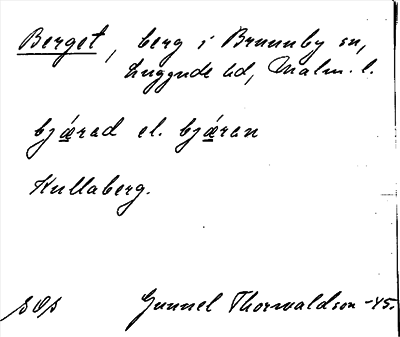 Berget, berg i Brunnby sn,
Luggude hd, Malm. l.
bjærad el. bjæran
Kullaberg.
Gunnel Thorwaldson -45.